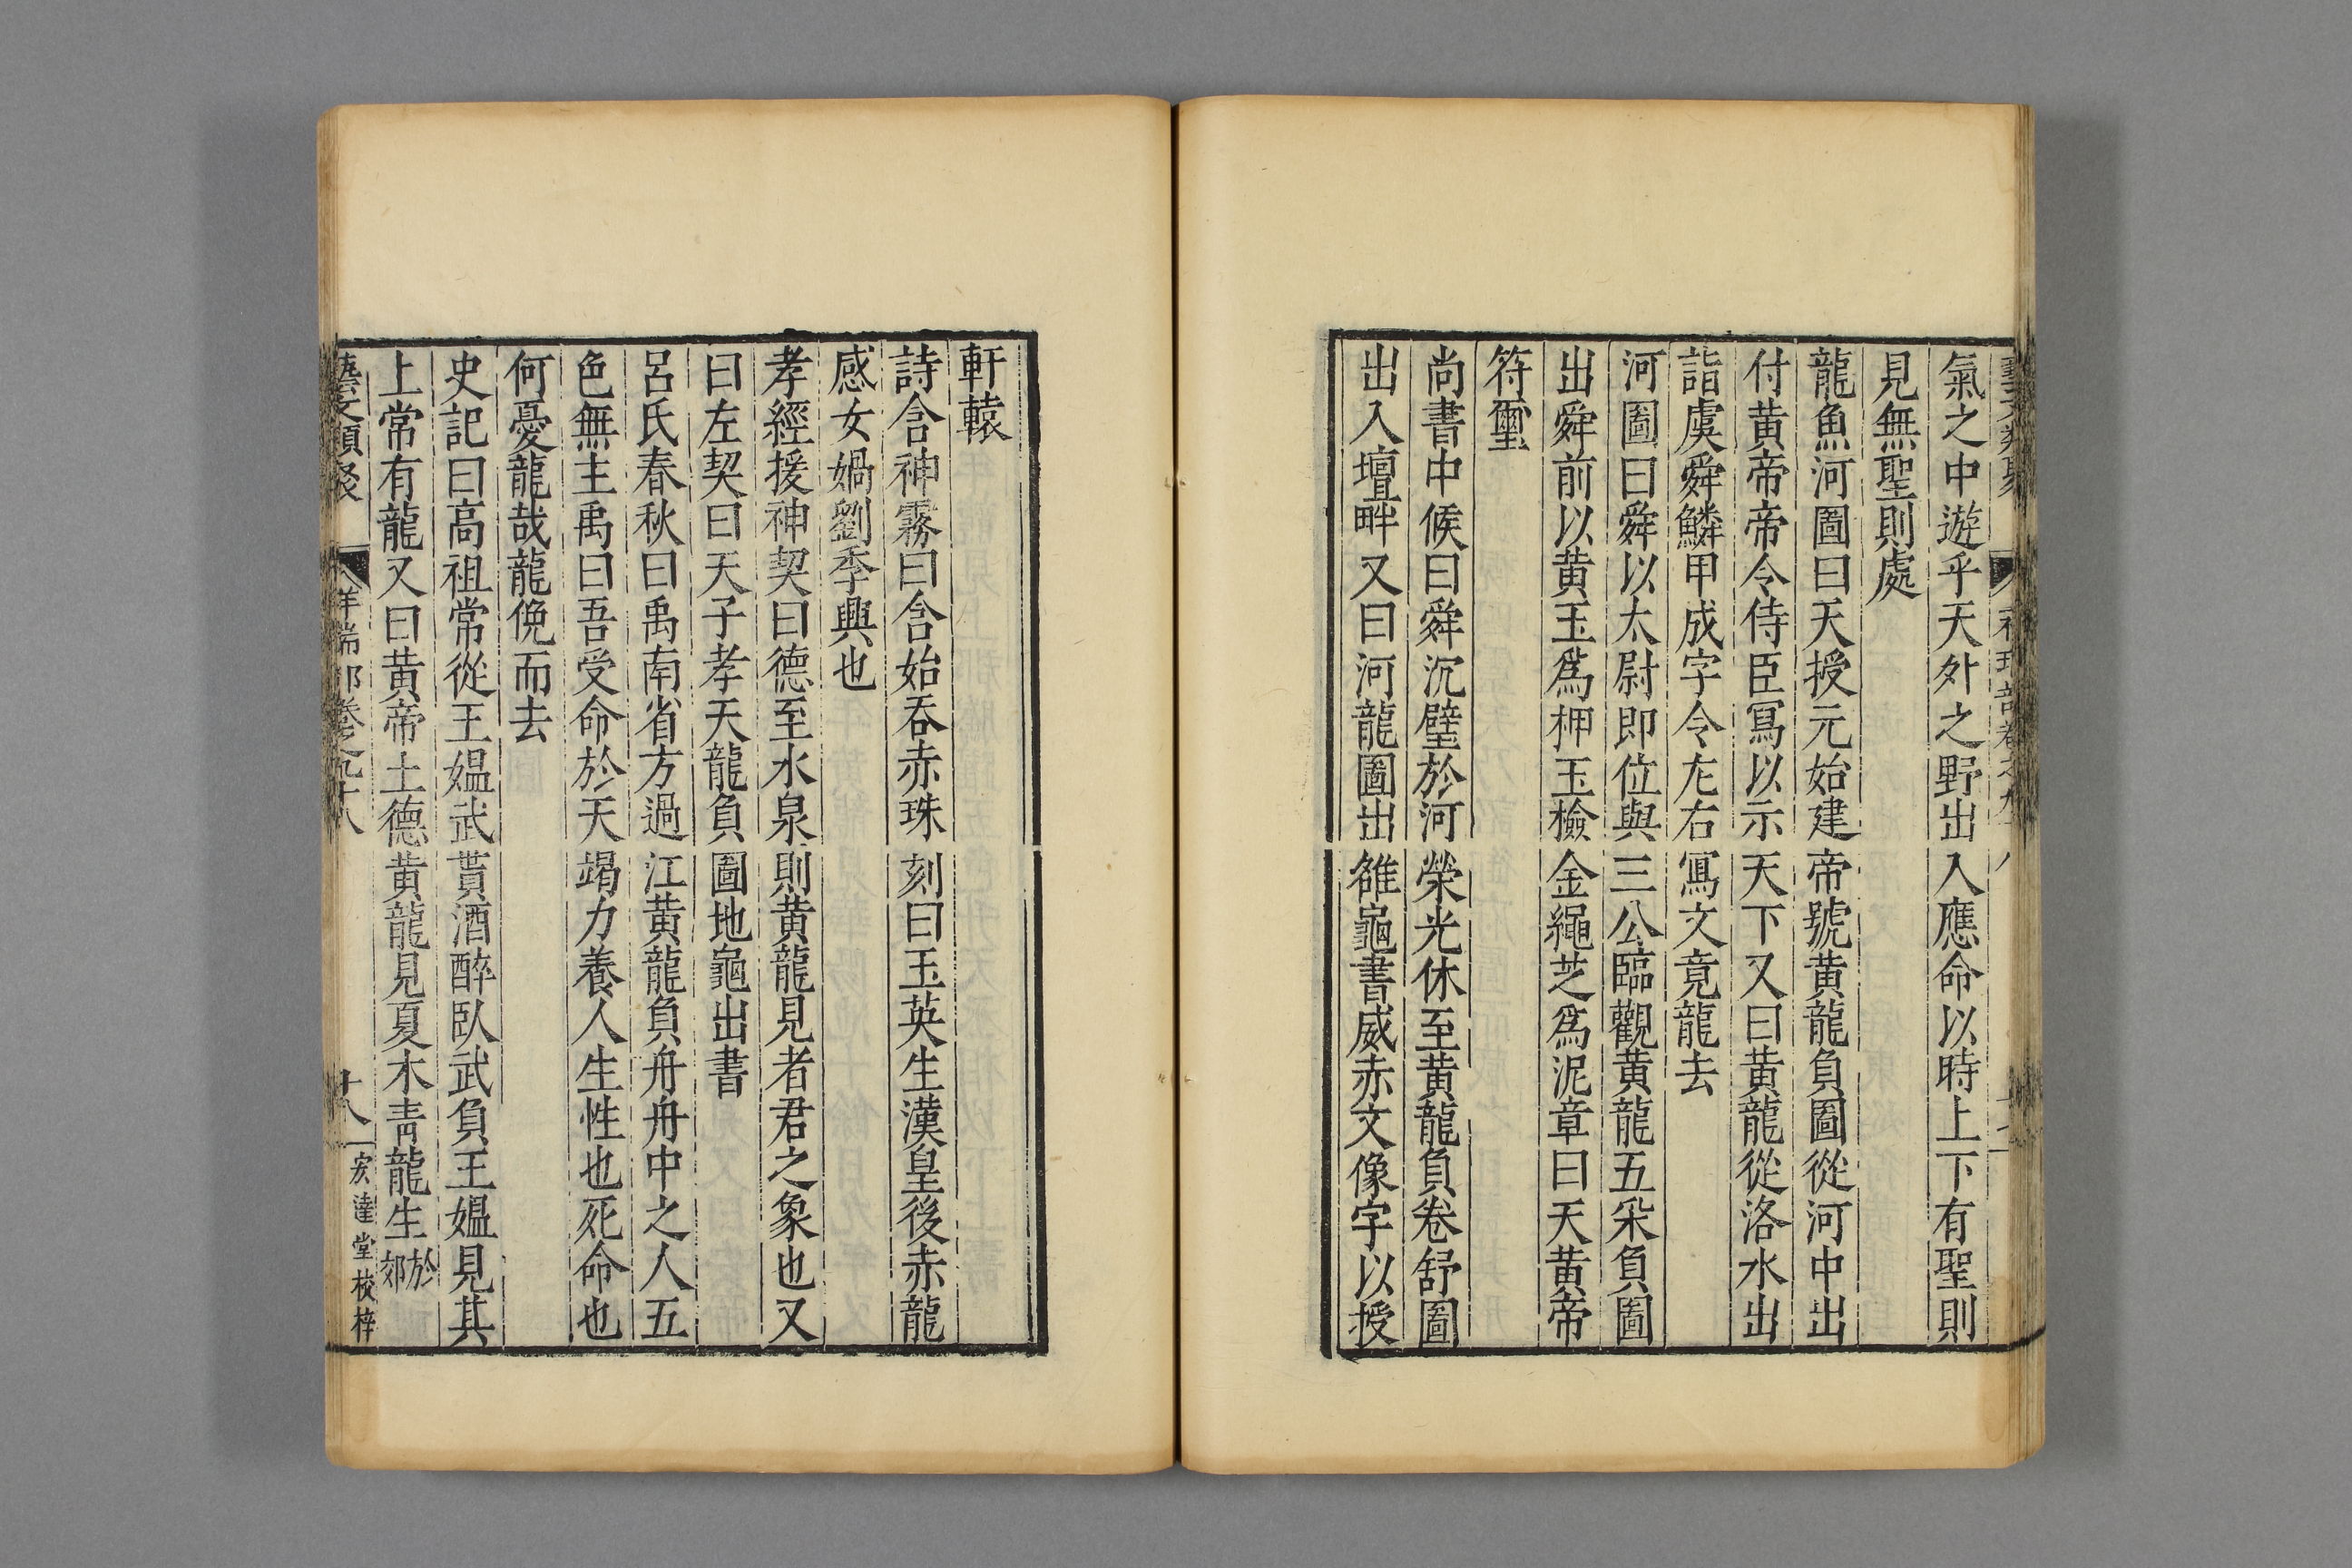 氣之中遊乎天外之野出入應命以時上下有聖則
見無聖則處
龍魚河圖曰天授元始建帝號黃龍負圖從河中出
付黃帝帝令侍臣冩以示天下又曰黃龍從洛水出
詣虞舜鱗甲成字令左右冩文竟龍去
河圖曰舜以太尉即位與三公臨觀黃龍五采負圖
出舜前以黃玉爲柙玉檢金繩芝爲泥章曰天黃帝
符璽
尚書中候曰舜沉璧於河榮光休至黃龍負卷舒圖
出入壇畔又曰河龍圖出雒龜書威赤文像字以授
軒轅
詩含神霧曰含始吞赤珠刻曰玉英生漢皇後赤龍
感女媧劉季興也
孝經援神契曰德至水泉則黃龍見者君之象也又
曰左契曰天子孝天龍負圖地龜出書
呂氏春秋曰禹南省方過江黃龍負舟舟中之人五
色無主禹曰吾受命於天竭力養人生性也死命也
何憂龍哉龍俛而去
史記曰高祖常從王媼武貰酒醉臥武負王媼見其
上常有龍又曰黃帝土德黃龍見夏木青龍生於郊
藝文類聚 祥瑞部卷之九十八 十八 宏達堂校梓